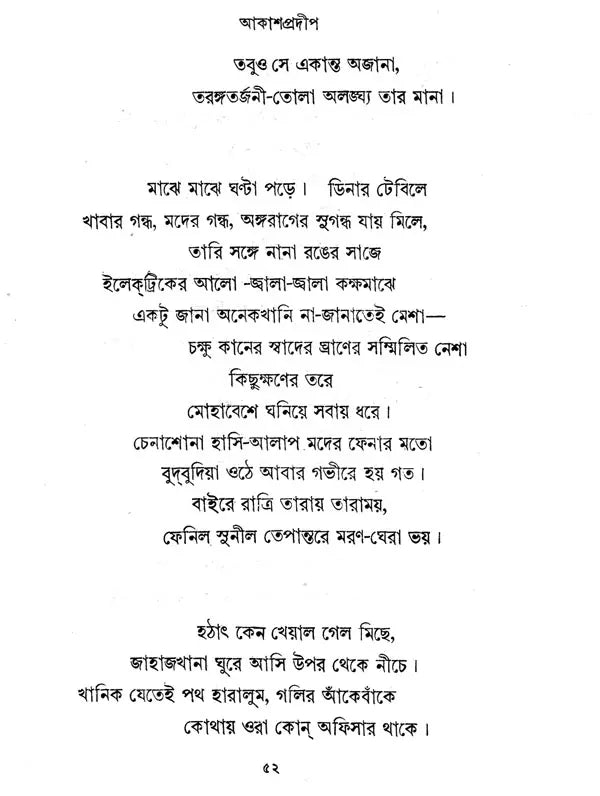 আকাশপ্রদীপ
তবুও সে একান্ত অজানা,
তরঙ্গতর্জনী-তোলা অলঙ্ঘ্য তার মানা।
মাঝে মাঝে ঘণ্টা পড়ে। ডিনার টেবিলে
খাবার গন্ধ, মদের গন্ধ, অঙ্গরাগের সুগন্ধ যায় মিলে,
তারি সঙ্গে নানা রঙের সাজে
ইলেক্‌ট্রিকের আলো -জ্বালা-জ্বালা কক্ষমাঝে
একটু জানা অনেকখানি না-জানাতেই মেশা—
চক্ষু কানের স্বাদের ঘ্রাণের সম্মিলিত নেশা
কিছুক্ষণের তরে
মোহাবেশে ঘনিয়ে সবায় ধরে।
চেনাশোনা হাসি-আলাপ মদের ফেনার মতো
বুদ্‌বুদিয়া ওঠে আবার গভীরে হয় গত।
বাইরে রাত্রি তারায় তারাময়,
ফেনিল সুনীল তেপান্তরে মরণ-ঘেরা ভয়।
হঠাৎ কেন খেয়াল গেল মিছে,
জাহাজখানা ঘুরে আসি উপর থেকে নীচে।
খানিক যেতেই পথ হারালুম, গলির আঁকেবাঁকে
কোথায় ওরা কোন্ অফিসার থাকে।
৫২